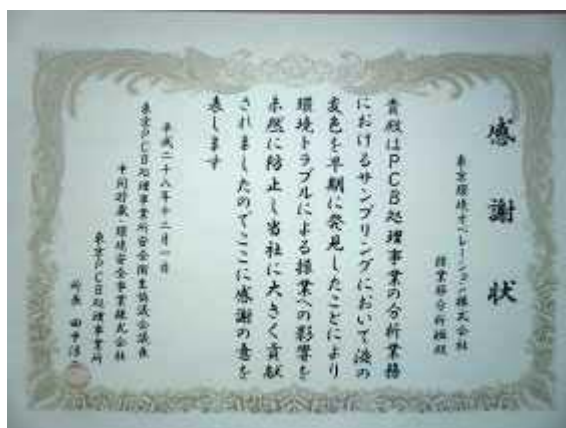 感謝状
東京環境オペレーション株式会社
操業部分析班殿
貴殿はPCB処理事業の分析業務
におけるサンプリングにおいて液の
変色を早期に発見したことにより
環境トラブルによる操業への影響を
未然に防止し当社に大きく貢献
されましたのでここに感謝の意を
表します
平成二十八年十二月一日
東京PCB処理事業所安全衛生協議会議長
中間貯蔵・環境安全事業株式会社
東京PCB処理事業所
所長 田中